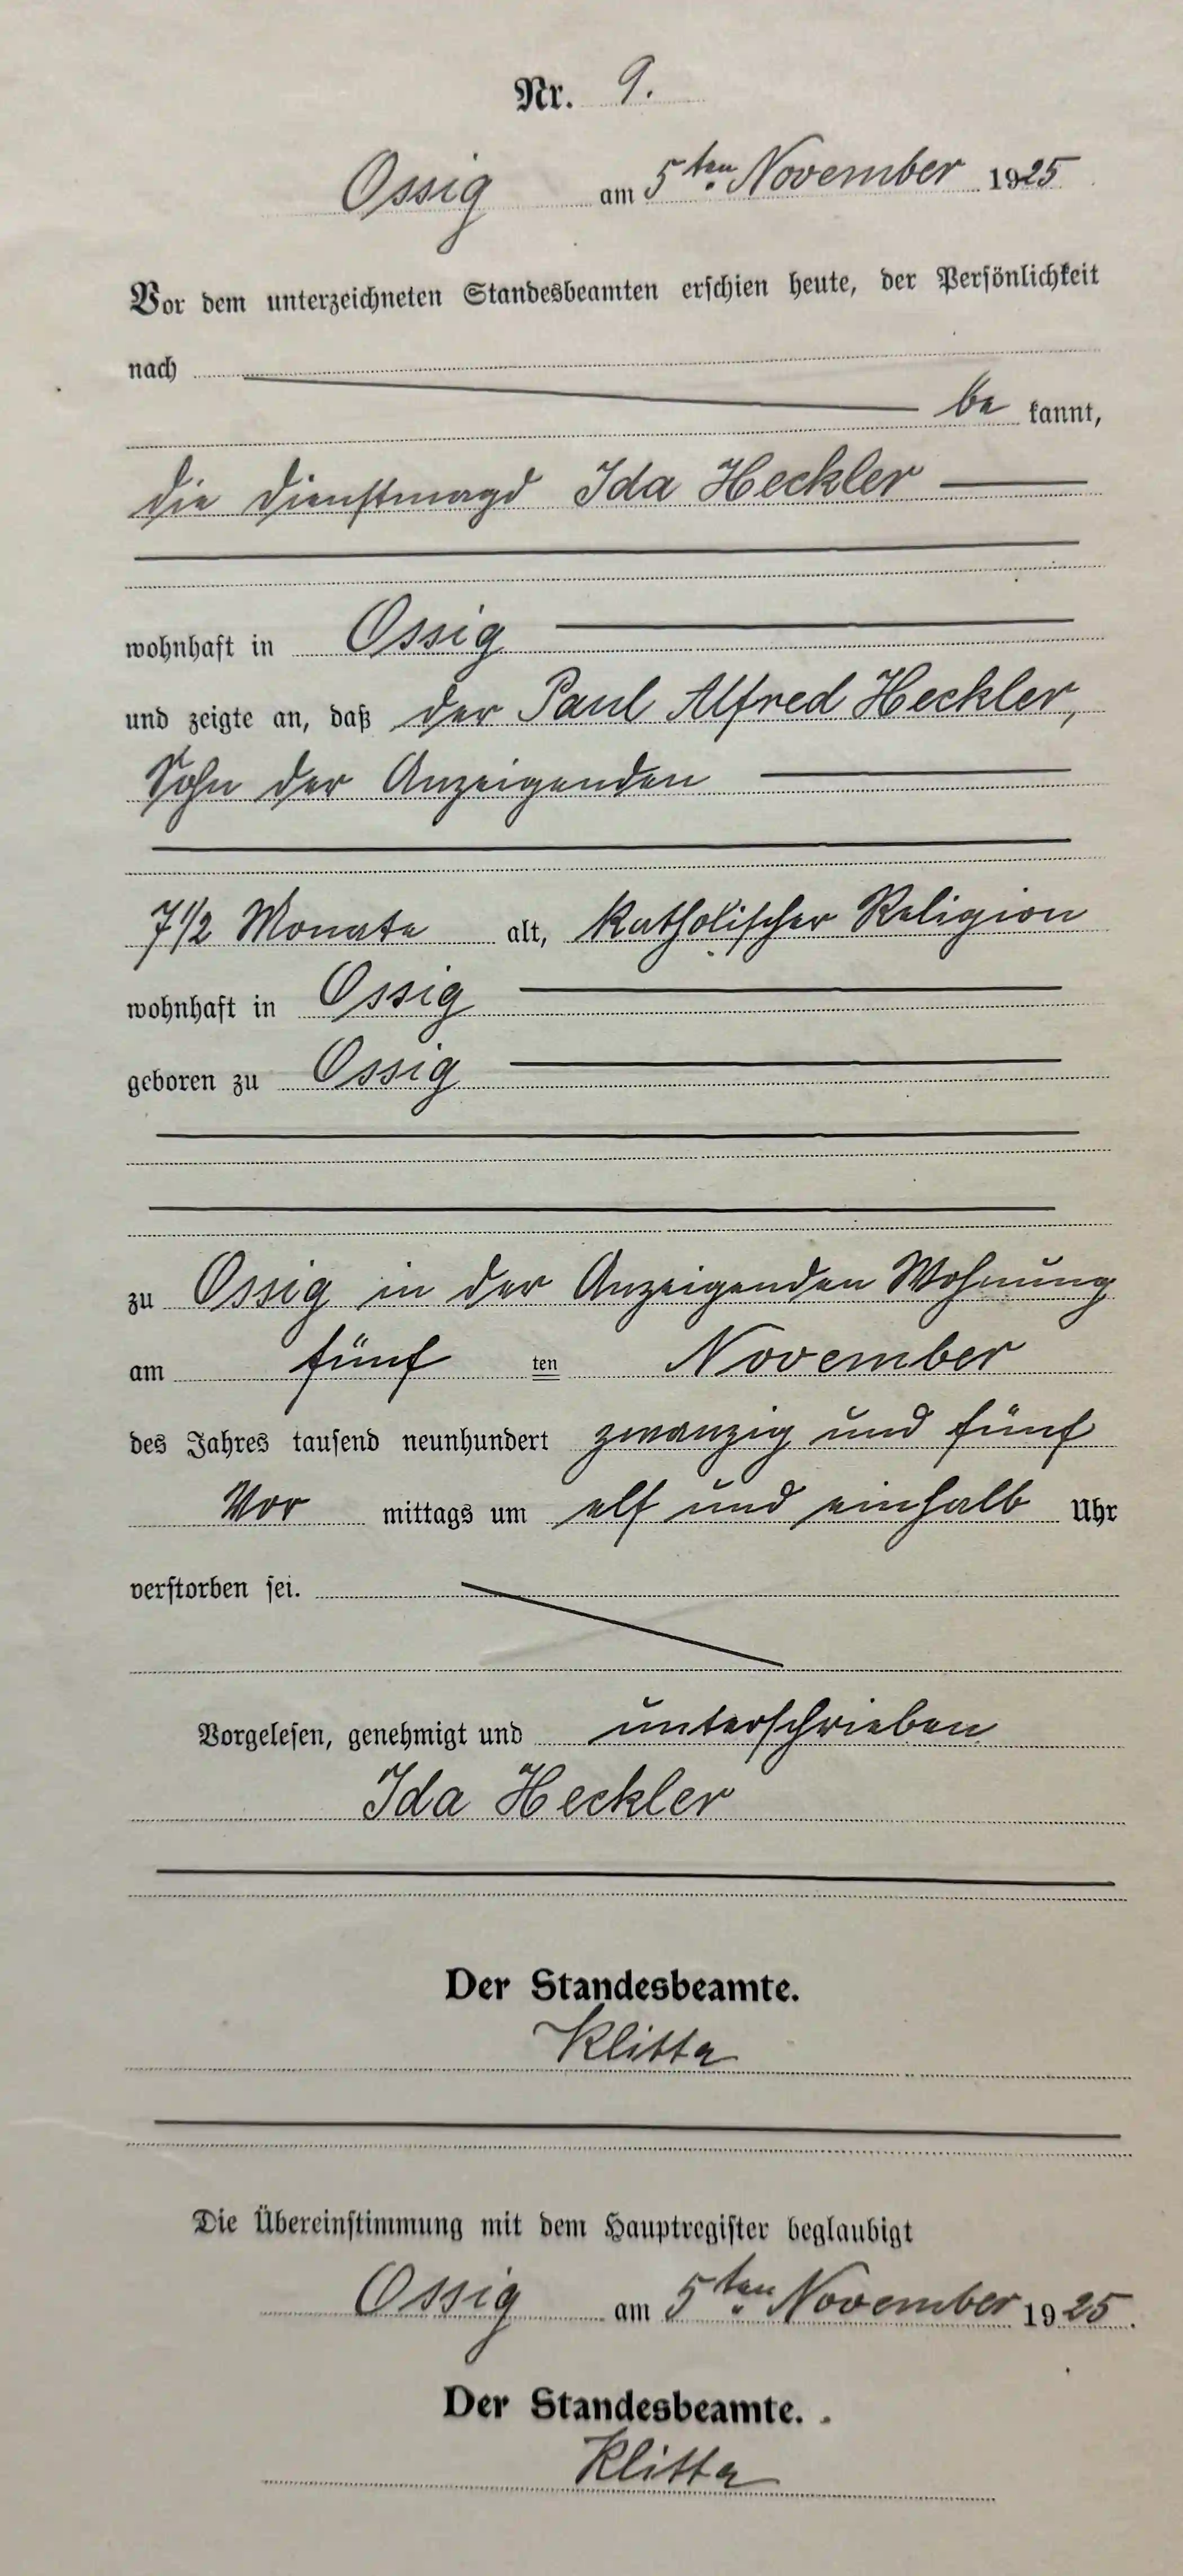 Nr. 9.
Ossig am 5ten November 1925
Vor dem unterzeichneten Standesbeamten erschien heute, der Persönlichkeit
nach
be kannt,
die Dienstmagd Ida Heckler
wohnhaft in Ossig
und zeigte an, daß der Paul Alfred Heckler,
Sohn der Anzeigenden
7 1/2 Monate alt, katholischer Religion
wohnhaft in Ossig
geboren zu Ossig
zu Ossig in der Anzeigenden Wohnung
am fünf ten November
des Jahres tausend neunhundert zwanzig und fünf
Vor mittags um elf und einhalb Uhr
verstorben sei.
Vorgelesen, genehmigt und unterschrieben
Ida Heckler
Der Standesbeamte.
Klitta
Die Übereinstimmung mit dem Hauptregister beglaubigt
Ossig am 5ten November 1925.
Der Standesbeamte.
Klitta